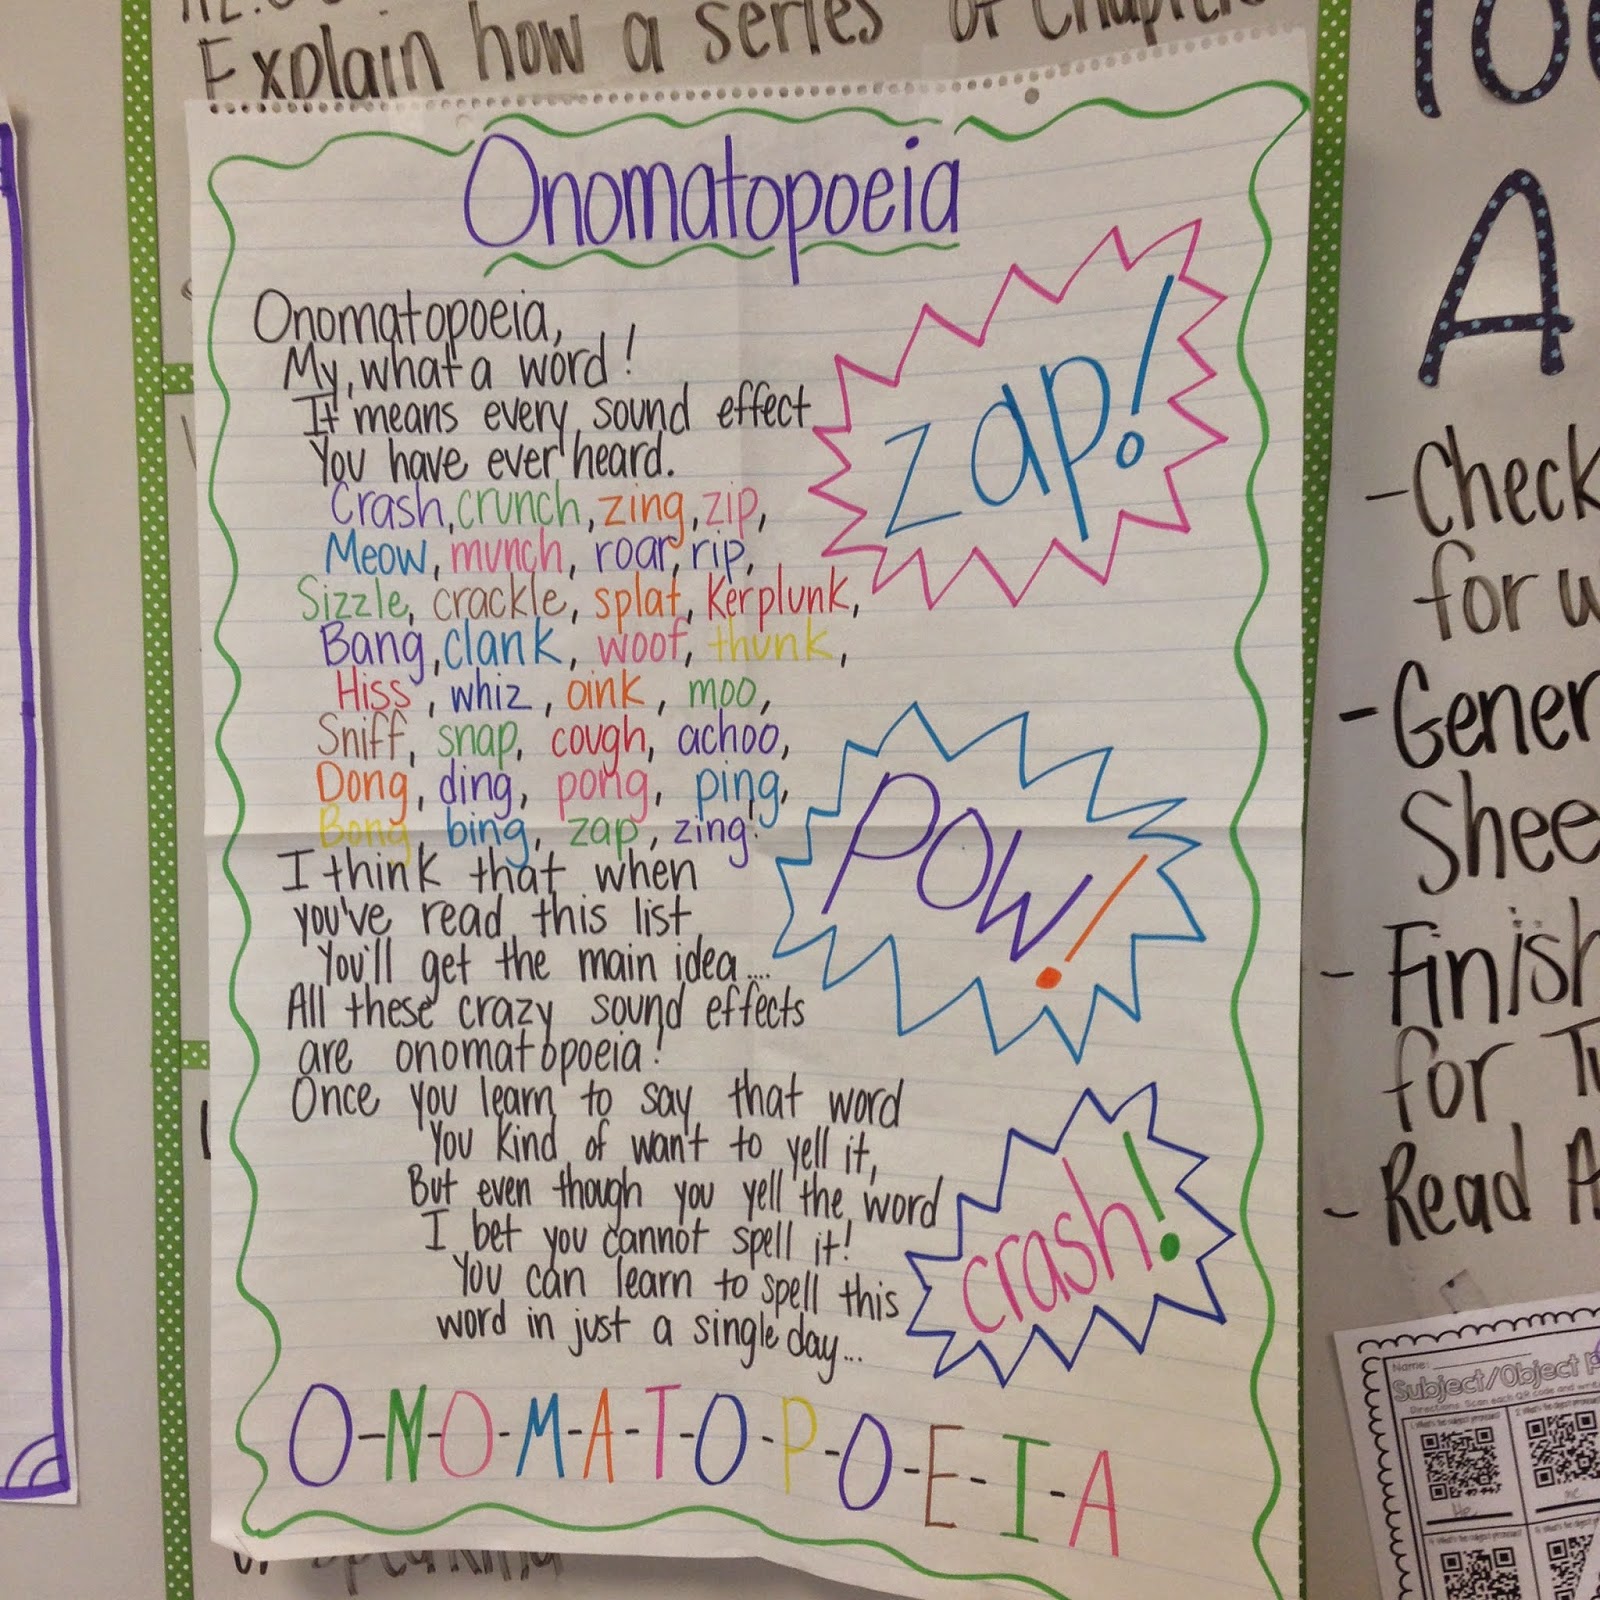 Explain how a series of
Onomatopoeia
Onomatopoeia,
My, what a word!
It means every sound effect
You have ever heard.
Crash, crunch, zing, zip,
Meow, munch, roar, rip,
Sizzle, crackle, splat, Kerplunk,
Bang, clank, woof, thunk,
Hiss, whiz, oink, moo,
Sniff, snap, cough, achoo,
Dong, ding, pong, ping,
Bong, bing, zap, zing!
I think that when
you've read this list
You'll get the main idea....
All these crazy sound effects
are onomatopoeia!
Once you learn to say that word
You kind of want to yell it,
But even though you yell the word
I bet you cannot spell it!
You can learn to spell this
word in just a single day...
O-N-O-M-A-T-O-P-O-E-I-A
zap!
POW!
crash!
A
-Check
for
-Gener
Shee
- Finish
for
- Read A
Name:
Subject/Object
Directions: Scan each QR code and
He
me